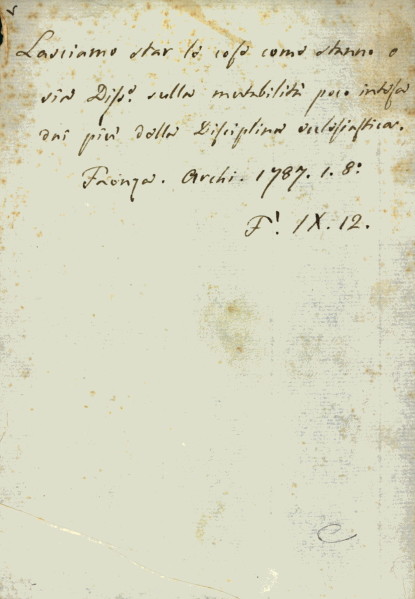 Lasciamo star le cose come stanno o
sia Diss.e sulla mutabilità poco intesa
dai più della Disciplina ecclesiastica.
Faenza. Archi. 1787. 1. 8:
F! IX. 12.